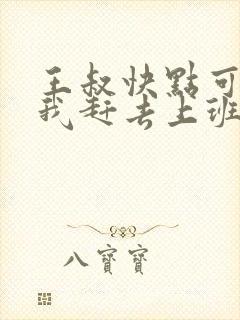 王叔快點可
我赶去上班
八寶寶